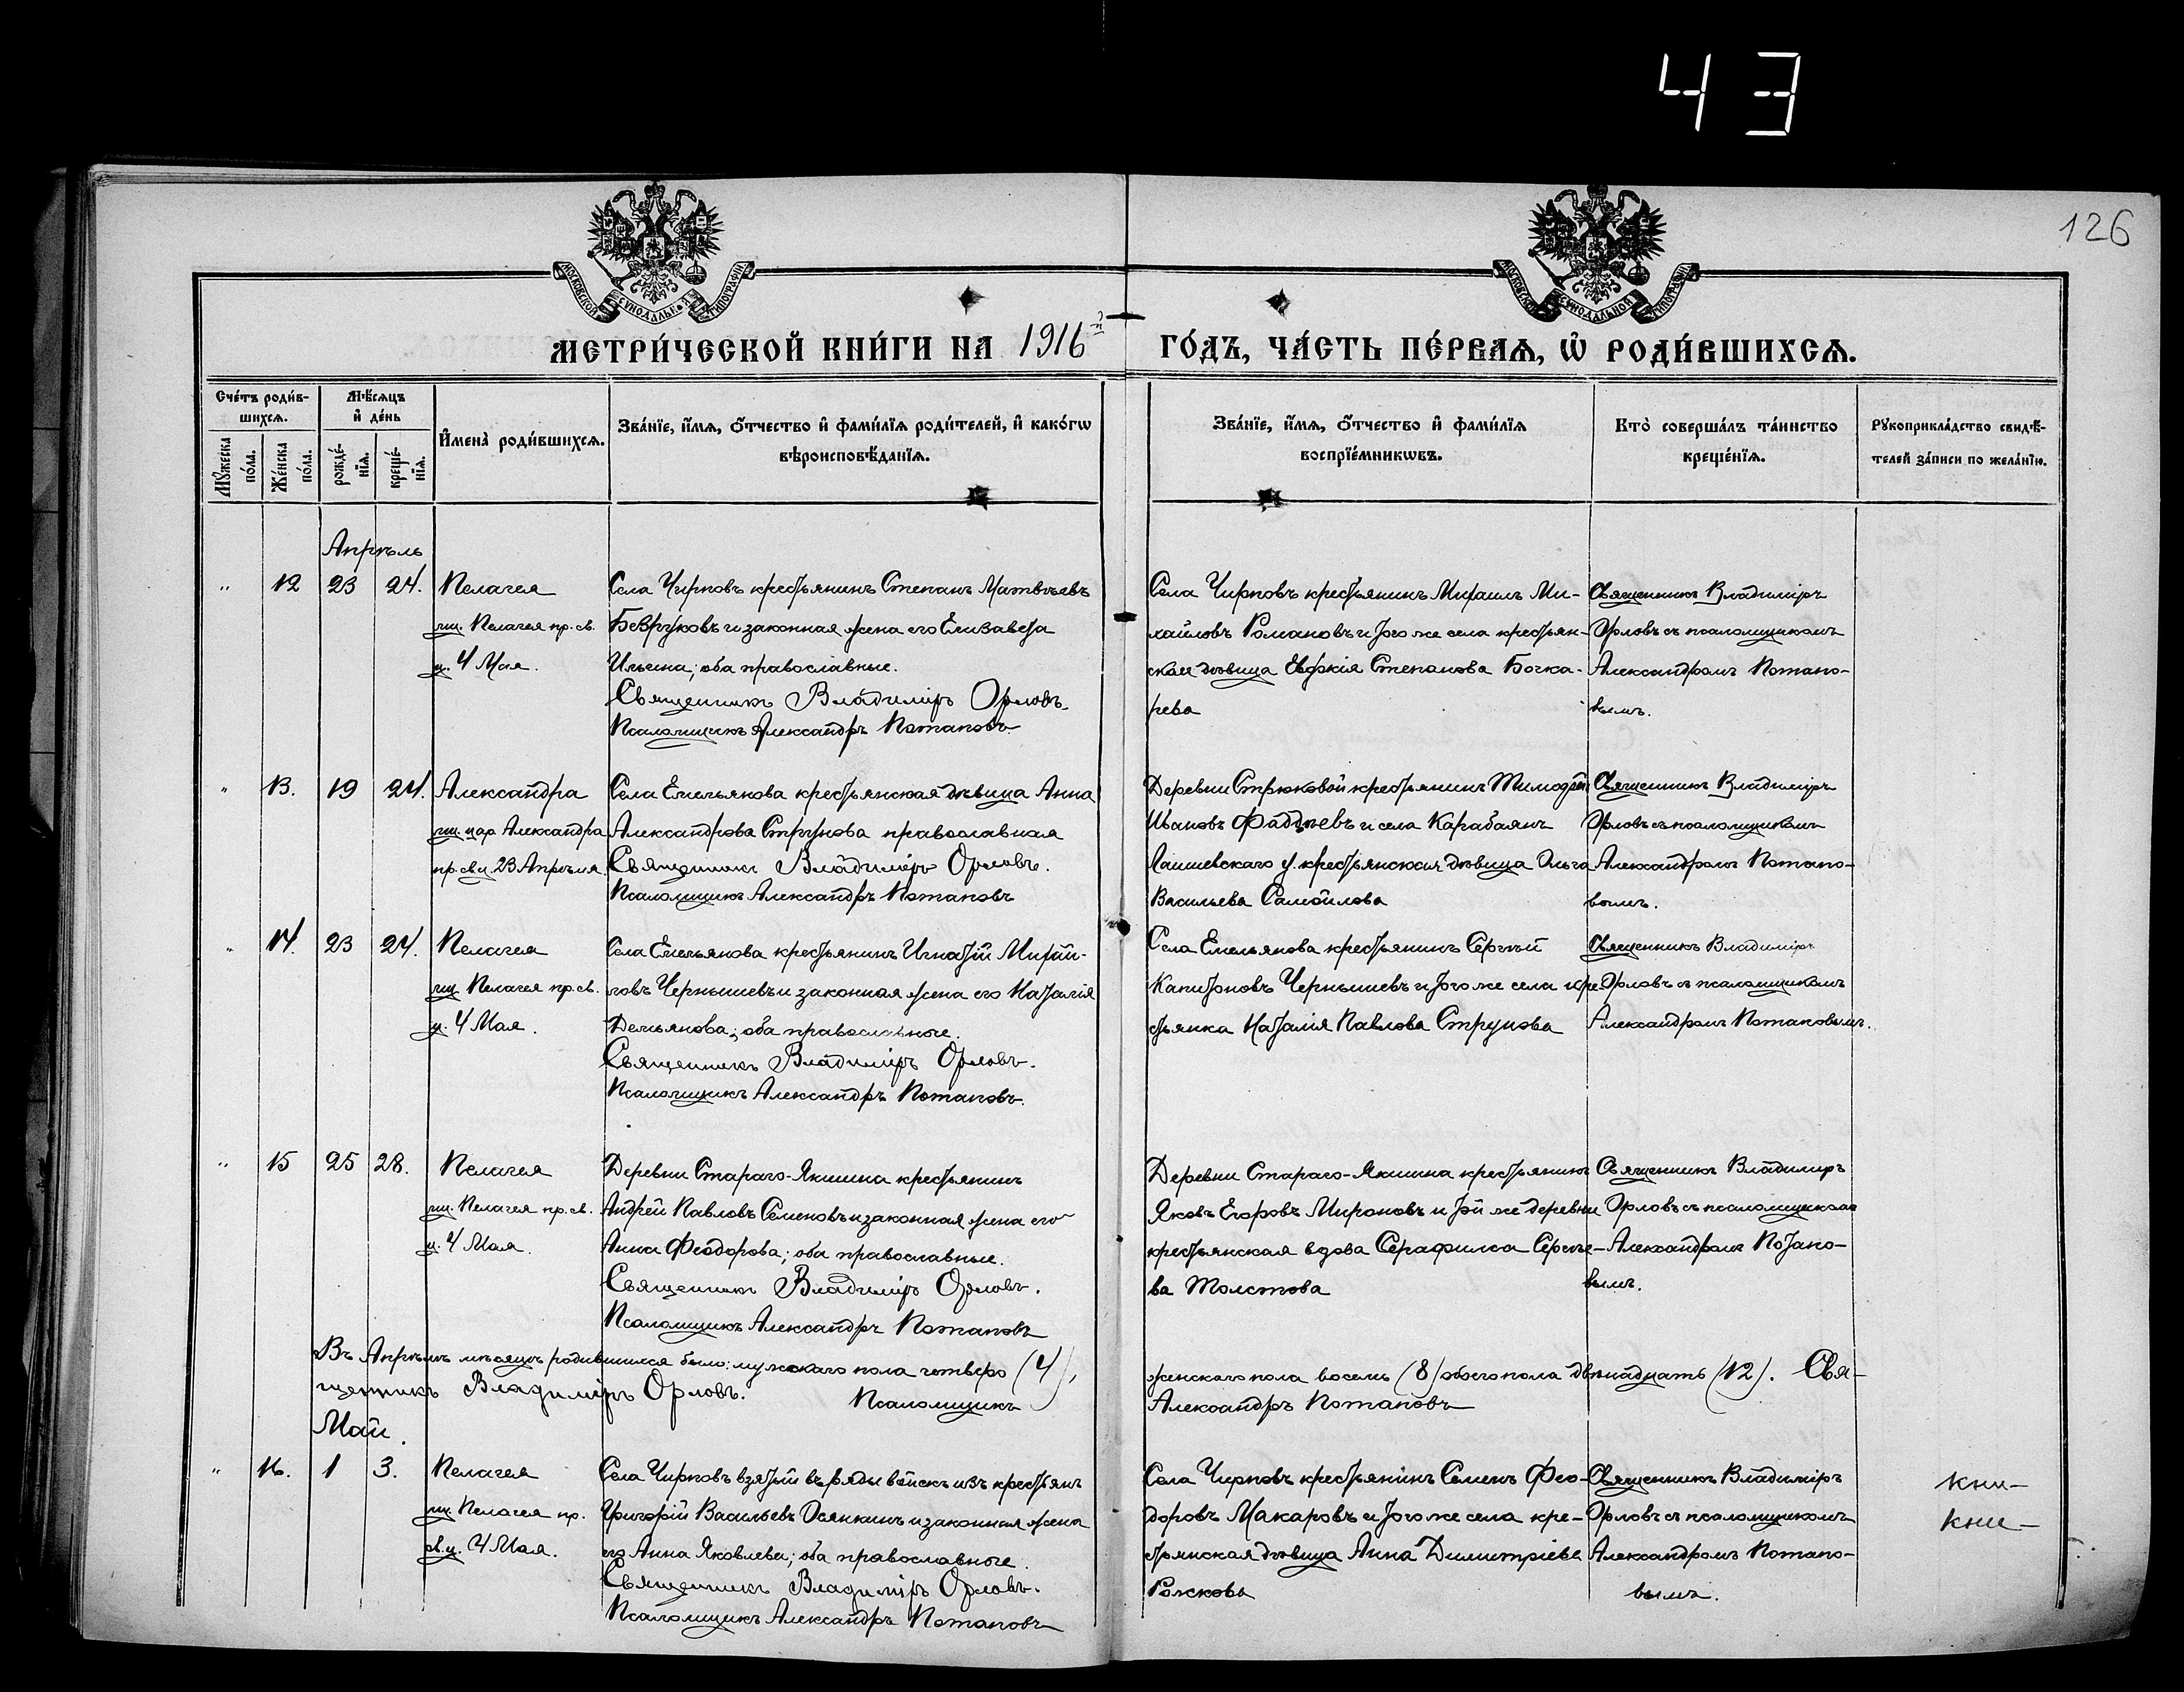 43
126
МОСКОВСКОЙ СѴНОДАЛЬНОЙ ТИПОГРАФІИ
МОСКОВСКОЙ СѴНОДАЛЬНОЙ ТИПОГРАФІИ
МЕТРИ́ЧЕСКОЙ КНИ́ГИ НА 1916й ГО́ДЪ, ЧА́СТЬ ПЕ́РВАѦ, Ѡ҆ РОДИ́ВШИХСѦ.
Сче́тъ роди́в-
шихсѧ.
Мꙋ́жеска по́ла.
Же́нска по́ла.
Мѣ́сѧцъ
и҆ де́нь
рожде́-
нїѧ.
креще́-
нїѧ.
И҆мена̀ роди́вшихсѧ.
Зва́нїе, и҆́мѧ, ѻ҆́тчество и҆ фами́лїѧ роди́телей, и҆ како́гѡ
вѣроисповѣ́данїѧ.
Зва́нїе, и҆́мѧ, ѻ҆́тчество и҆ фами́лїѧ
воспрїе́мникѡвъ.
Кто̀ соверша́лъ та́инство
креще́нїѧ.
Рꙋкоприкла́дство свидѣ́-
телей за́писи по жела́нїю.
Апрѣль
" 12 23 24. Пелагея
мц. Пелагея пр. св.
ц. 4 Мая.
Села Чирповъ крестьянинъ Степанъ Матвѣевъ
Безруковъ и законная жена его Елизавета
Ильина; оба православные.
Священникъ Владиміръ Орловъ.
Псаломщикъ Александръ Потаповъ
Села Чирповъ крестьянинъ Михаилъ Ми-
хайловъ Романовъ и того же села крестьян-
ская дѣвица Евдокія Степанова Бочка-
рева
Священникъ Владиміръ
Орловъ съ псаломщикомъ
Александромъ Потапо-
вымъ.
" 13. 19 24. Александра
мц. цар. Александра
пр. св. ц. 23 Апрѣля.
Села Емельянова крестьянская дѣвица Анна
Александрова Струнова православная
Священникъ Владиміръ Орловъ.
Псаломщикъ Александръ Потаповъ
Деревни Стрюковой крестьянинъ Тимофей
Ивановъ Фаддѣевъ и села Карабаянъ
Лаишевскаго у. крестьянская дѣвица Ольга
Васильева Самойлова
Священникъ Владиміръ
Орловъ съ псаломщикомъ
Александромъ Потапо-
вымъ.
" 14. 23 24. Пелагея
мц. Пелагея пр. св.
ц. 4 Мая.
Села Емельянова крестьянинъ Игнатій Михай-
ловъ Чернышевъ и законная жена его Наталія
Демьянова; оба православные.
Священникъ Владиміръ Орловъ.
Псаломщикъ Александръ Потаповъ.
Села Емельянова крестьянинъ Сергѣй
Капитоновъ Чернышевъ и того же села кре-
стьянка Наталія Павлова Струнова
Священникъ Владиміръ
Орловъ съ псаломщикомъ
Александромъ Потаповымъ.
" 15 25 28. Пелагея
мц. Пелагея пр. св.
ц. 4 Мая.
Деревни Стараго-Якшина крестьянинъ
Андрей Павловъ Семеновъ и законная жена его
Анна Феодорова; оба православные.
Священникъ Владиміръ Орловъ.
Псаломщикъ Александръ Потаповъ
Деревни Стараго-Якшина крестьянинъ
Яковъ Егоровъ Мироновъ и той же деревни
крестьянская вдова Серафима Сергѣе-
ва Толстова
Священникъ Владиміръ
Орловъ съ псаломщикомъ
Александромъ Потапо-
вымъ.
Въ Апрѣлѣ мѣсяцѣ родившихся было: мужского пола четверо (4), женскаго пола восемь (8) обоего пола двѣнадцать (12). Свя-
щенникъ Владиміръ Орловъ. Псаломщикъ Александръ Потаповъ
Май.
" 16. 1 3. Пелагея
мц. Пелагея пр.
св. ц. 4 Мая.
Села Чирповъ взятый въ ряды войскъ изъ крестьянъ
Григорій Васильевъ Осянкинъ и законная жена
его Анна Яковлева; оба православные.
Священникъ Владиміръ Орловъ.
Псаломщикъ Александръ Потаповъ
Села Чирповъ крестьянинъ Семенъ Фео-
доровъ Макаровъ и того же села кре-
стьянская дѣвица Анна Димитріева
Рожкова
Священникъ Владиміръ
Орловъ съ псаломщикомъ
Александромъ Потапо-
вымъ.
кни-
кни-